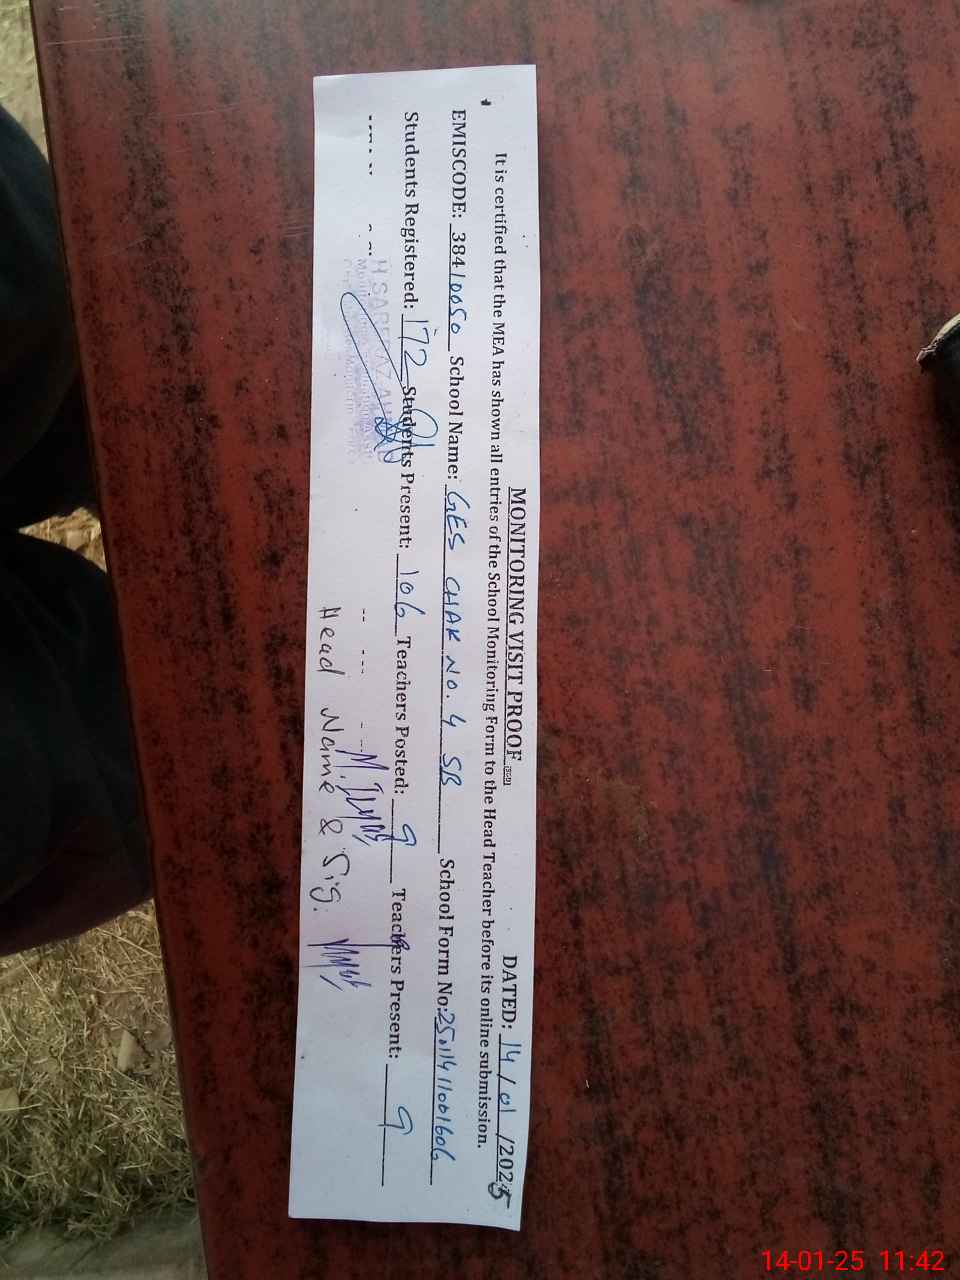 MONITORING VISIT PROOF DATED: 14/01/2025
It is certified that the MEA has shown all entries of the School Monitoring Form to the Head Teacher before its online submission.
EMISCODE: 38410050 School Name: GES CHAK NO. 4 SB School Form No: 25011411001606
Students Registered: 172 Students Present: 106 Teachers Posted: 9 Teachers Present: 9
Head Name & Sig.
14-01-25 11:42